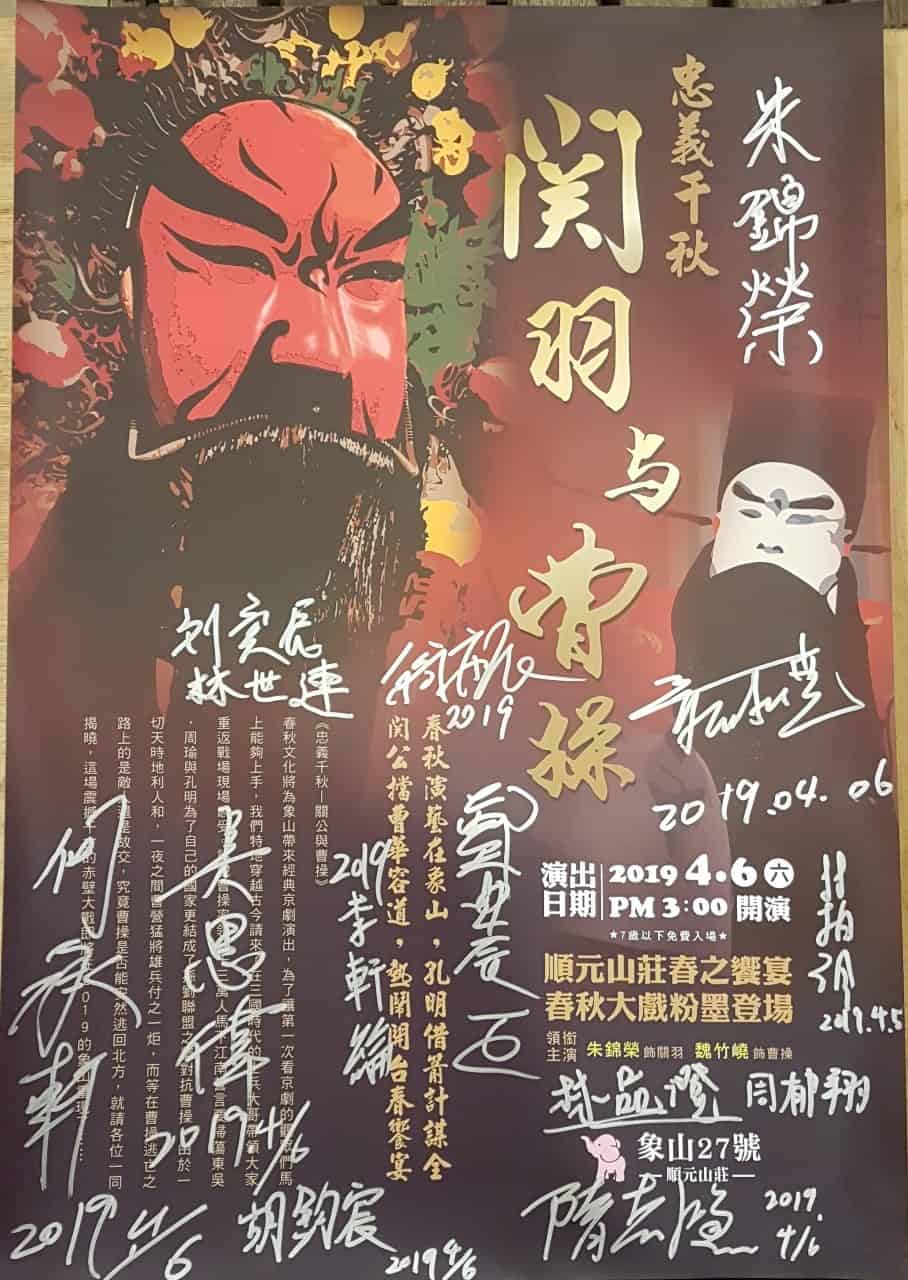 忠義千秋
関羽
与
曹操
朱錦榮
刘奕辰
林世連
2019
2019.04.06
春秋演藝在象山，孔明借箭計謀全
関公擋曹華容道，熱鬧開台春饗宴
《忠義千秋－關公與曹操》
春秋文化將為象山帶來經典京劇演出，為了讓第一次看京劇的觀眾們馬
上能夠上手，我們特地穿越古今請來
在三國時代的
兵大哥帶領大家
重返戰場現場
萬人馬
江南
言
掃蕩東吳
，周瑜與孔明為了自己的國家更結成了
劉聯盟之
對抗曹操
由於一
切天時地利人和，一夜之間
曹營猛將雄兵付之一炬，而等在曹操逃亡之
路上的是敵
還是故交，究竟曹操是否能
然逃回北方，就請各位一同
揭曉，這場震撼
的赤壁大戰即將
2019的象山重現……
演出
日期
2019 4.6 六
PM 3:00 開演
★7歲以下免費入場★
順元山莊春之饗宴
春秋大戲粉墨登場
領銜
主演
朱錦榮 飾關羽 魏竹嶢 飾曹操
2019.4.5
2019 李軒綸
吳思偉
2019 4/6
何
軒
2019 4/6
胡鈞宸
2019 4/6
趙益澄
周郁翔
象山27號
— 順元山莊 —
隋志鴻
2019.
4/6